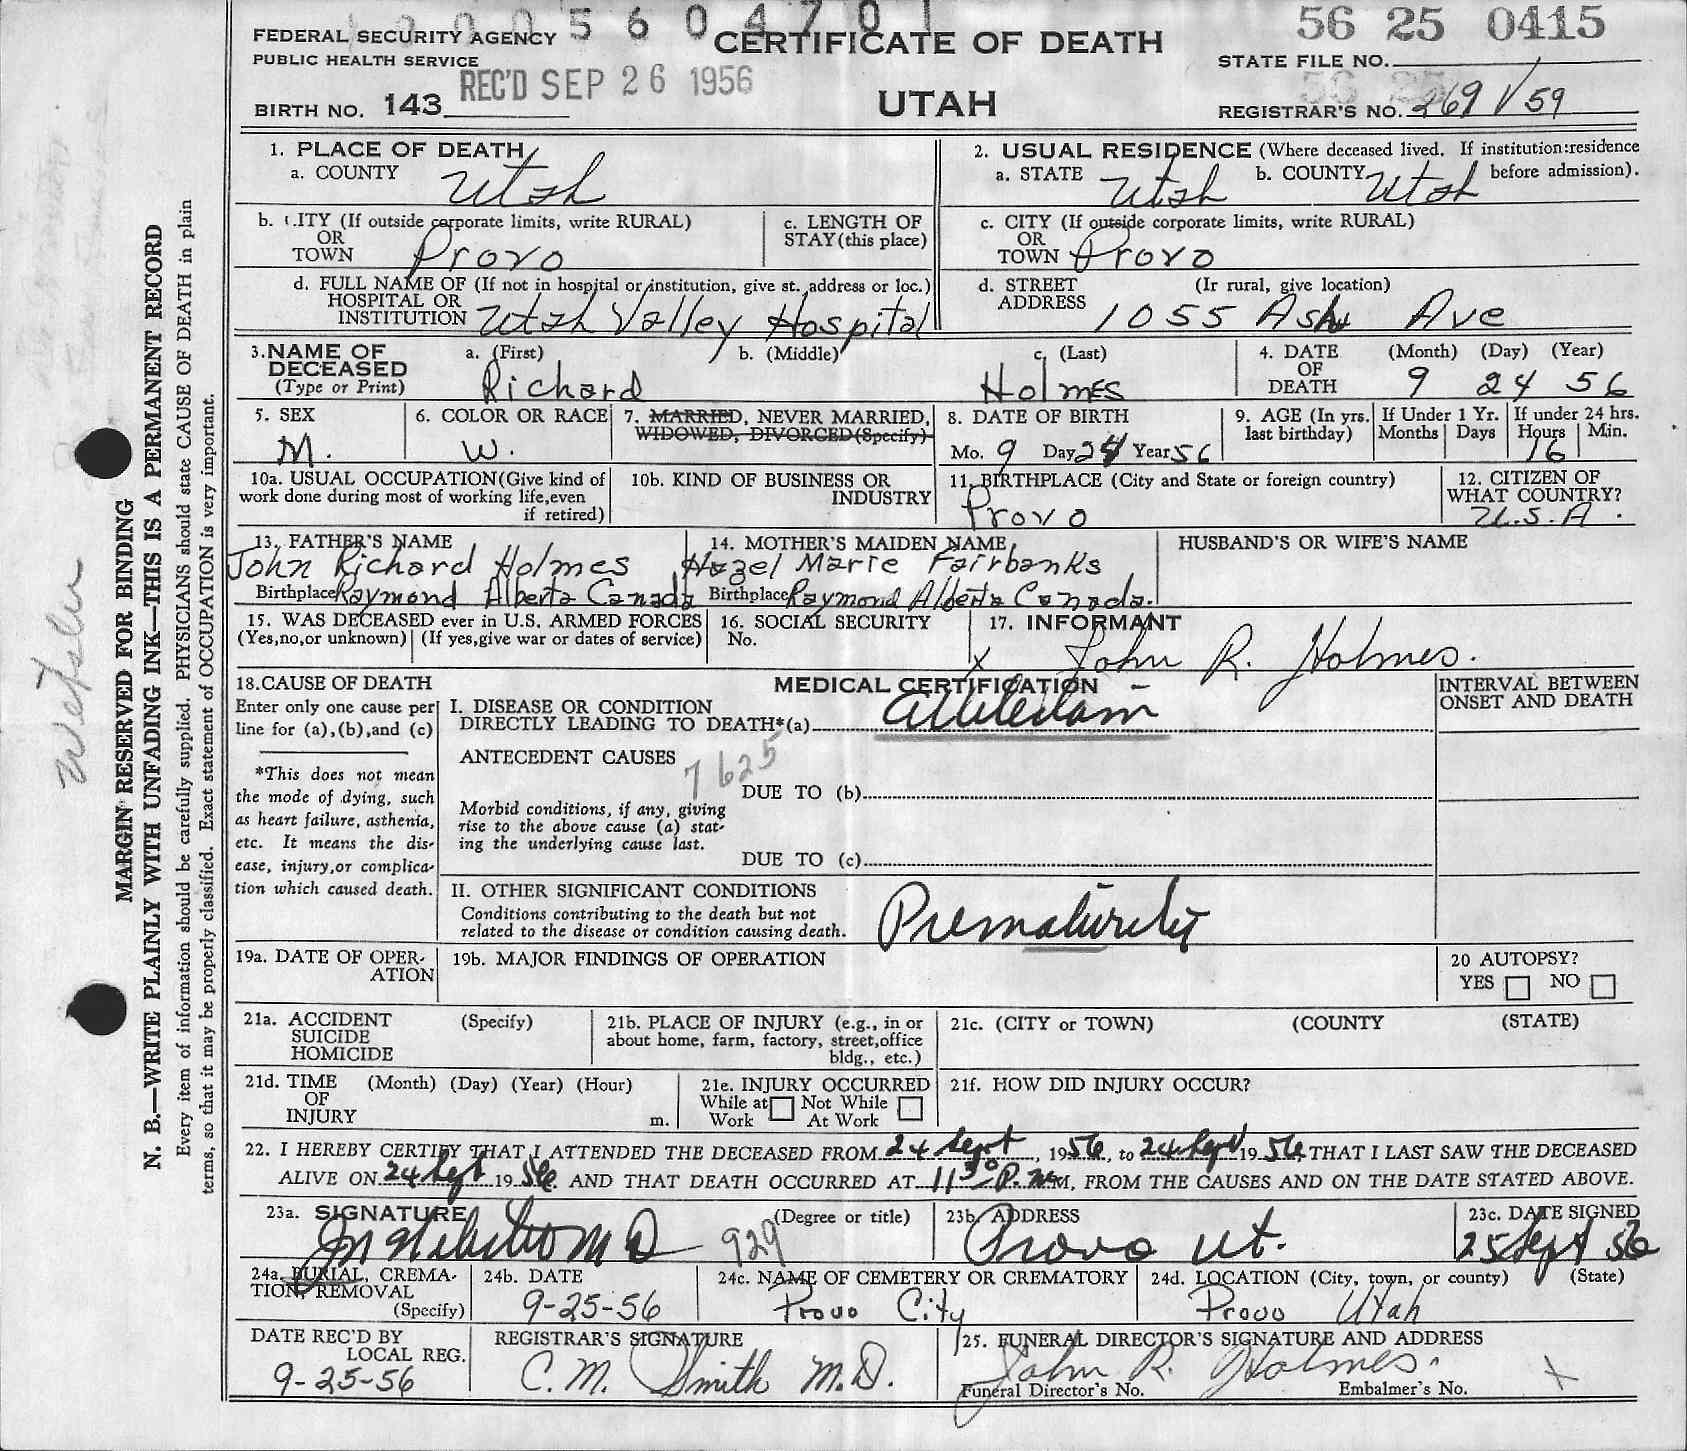 1 0 0 0 5 6 0 4 7 0 1
FEDERAL SECURITY AGENCY
PUBLIC HEALTH SERVICE
REC'D SEP 26 1956
BIRTH NO. 143
CERTIFICATE OF DEATH
UTAH
56 25 0415
STATE FILE NO.
56 25
REGISTRAR'S NO. 269 V 59
1. PLACE OF DEATH
a. COUNTY Utah
2. USUAL RESIDENCE (Where deceased lived. If institution:residence
a. STATE Utah b. COUNTY Utah before admission).
b. CITY (If outside corporate limits, write RURAL)
OR
TOWN Provo
c. LENGTH OF
STAY(this place)
c. CITY (If outside corporate limits, write RURAL)
OR
TOWN Provo
d. FULL NAME OF (If not in hospital or institution, give st. address or loc.)
HOSPITAL OR
INSTITUTION Utah Valley Hospital
d. STREET (Ir rural, give location)
ADDRESS 1055 Ash Ave
3.NAME OF DECEASED
(Type or Print)
a. (First) b. (Middle) c. (Last)
Richard Holmes
4. DATE OF DEATH
(Month) (Day) (Year)
9 24 56
5. SEX
M.
6. COLOR OR RACE
W.
7. MARRIED, NEVER MARRIED,
WIDOWED, DIVORCED(Specify)
8. DATE OF BIRTH
Mo. 9 Day 24 Year 56
9. AGE (In yrs.
last birthday)
If Under 1 Yr.
Months Days
If under 24 hrs.
Hours Min.
16
10a. USUAL OCCUPATION(Give kind of
work done during most of working life,even
if retired)
10b. KIND OF BUSINESS OR
INDUSTRY
11. BIRTHPLACE (City and State or foreign country)
Provo
12. CITIZEN OF
WHAT COUNTRY?
U.S.A.
13. FATHER'S NAME
John Richard Holmes
Birthplace Raymond Alberta Canada
14. MOTHER'S MAIDEN NAME
Hazel Marie Fairbanks
Birthplace Raymond Alberta Canada.
HUSBAND'S OR WIFE'S NAME
15. WAS DECEASED ever in U.S. ARMED FORCES
(Yes,no,or unknown) (If yes,give war or dates of service)
16. SOCIAL SECURITY
No.
17. INFORMANT
X John R. Holmes.
18.CAUSE OF DEATH
Enter only one cause per
line for (a),(b),and (c)
*This does not mean
the mode of dying, such
as heart failure, asthenia,
etc. It means the dis-
ease, injury,or complica-
tion which caused death.
MEDICAL CERTIFICATION
I. DISEASE OR CONDITION
DIRECTLY LEADING TO DEATH*(a)
ANTECEDENT CAUSES
7625
DUE TO (b)
Morbid conditions, if any, giving
rise to the above cause (a) stat-
ing the underlying cause last.
DUE TO (c)
INTERVAL BETWEEN
ONSET AND DEATH
II. OTHER SIGNIFICANT CONDITIONS
Conditions contributing to the death but not
related to the disease or condition causing death.
Prematurity
19a. DATE OF OPER-
ATION
19b. MAJOR FINDINGS OF OPERATION
20 AUTOPSY?
YES NO
21a. ACCIDENT (Specify)
SUICIDE
HOMICIDE
21b. PLACE OF INJURY (e.g., in or
about home, farm, factory, street,office
bldg., etc.)
21c. (CITY or TOWN) (COUNTY (STATE)
21d. TIME (Month) (Day) (Year) (Hour)
OF
INJURY m.
21e. INJURY OCCURRED
While at Not While
Work At Work
21f. HOW DID INJURY OCCUR?
22. I HEREBY CERTIFY THAT I ATTENDED THE DECEASED FROM 24 Sept, 1956, to 24 Sept 1956, THAT I LAST SAW THE DECEASED
ALIVE ON 24 Sept 1956. AND THAT DEATH OCCURRED AT 11 30 P. M, FROM THE CAUSES AND ON THE DATE STATED ABOVE.
23a. SIGNATURE (Degree or title)
M D 929
23b. ADDRESS
Provo Ut.
23c. DATE SIGNED
25 Sept 56
24a. BURIAL, CREMA-
TION, REMOVAL
(Specify)
24b. DATE
9-25-56
24c. NAME OF CEMETERY OR CREMATORY
Provo City
24d. LOCATION (City, town, or county) (State)
Provo Utah
DATE REC'D BY
LOCAL REG.
9-25-56
REGISTRAR'S SIGNATURE
C. M. Smith M.D.
25. FUNERAL DIRECTOR'S SIGNATURE AND ADDRESS
John R. Holmes.
Funeral Director's No. Embalmer's No. X
MARGIN RESERVED FOR BINDING
N. B.—WRITE PLAINLY WITH UNFADING INK—THIS IS A PERMANENT RECORD
Every item of information should be carefully supplied. PHYSICIANS should state CAUSE OF DEATH in plain
terms, so that it may be properly classified. Exact statement of OCCUPATION is very important.